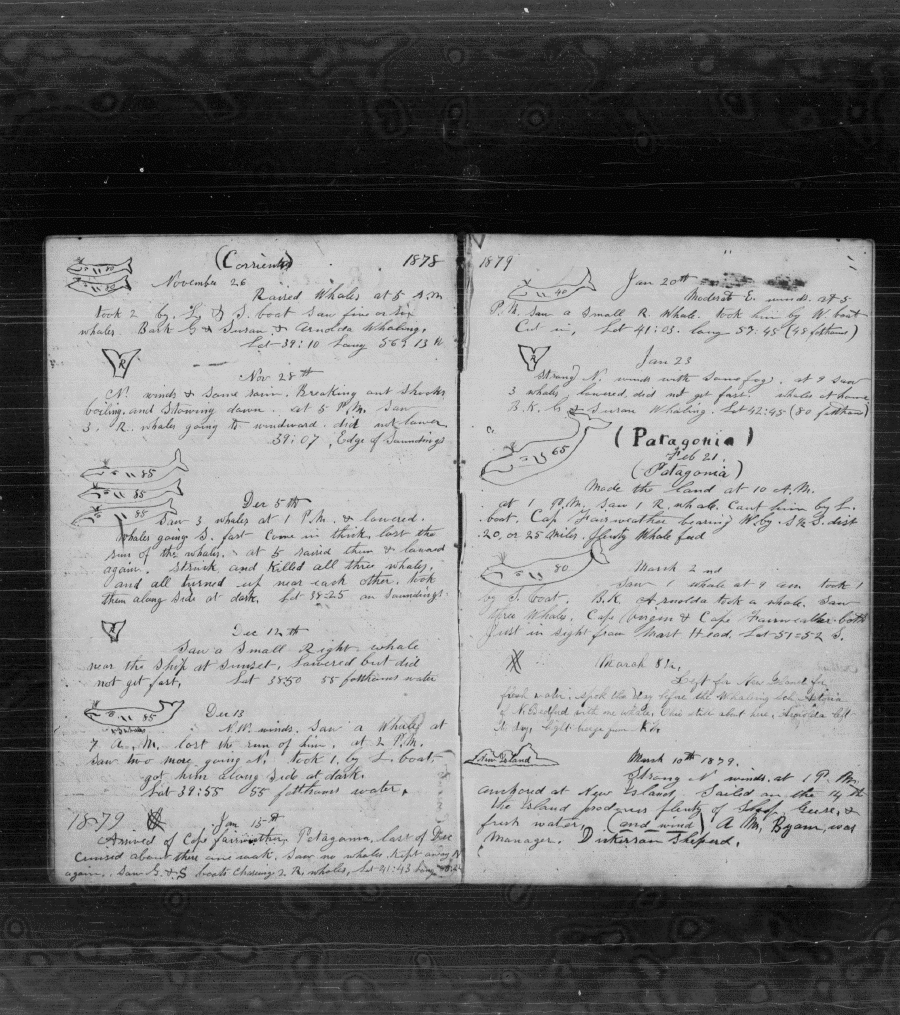 (Corrientes) 1878
80
80
November 26
Raised Whales at 5 A.M.
took 2 by L. & S. boat saw five or six
whales. Bark G & Susan & Arnolda Whaling.
Lat 39:10 Long 56
R
Nov 28th
N. winds & some rain. Breaking out Shooks
boiling, and Stowing down. at 5 P.M. saw
3. R. whales going to windward. did not lower
39:07 Edge of Soundings
85
85
85
Dec 5th
Saw 3 whales at 1 P.M. & lowered.
Whales going S. fast come in thick, lost the
run of the whales. at 5 raised them & lowered
again. Struck, and killed all three whales.
and all turned up near each other. took
them along side at dark. Lat 38=25 on Soundings
R
Dec 12th
Saw a Small Right whale
near the Ship at Sunset, lowered but did
not get fast. Lat 38:50 55 fotthoms water
85
Dec 13
N.W. winds. Saw a Whale at
7 A.M. lost the run of him. at 2 P.M.
saw two more going N. took 1, by L. boat
got him along side at dark.
Lat 39:55 55 fotthoms water.
1879 Jan 15th
Arrived of Cape fairweather, Patagonia, last of Dec
Cruised about there one week. Saw no whales. Kept away N
again. saw G. & S boats chasing 2 R. whales, Lat 41:43
1879
40
Jan 20th
Moderat E. winds. at 5
P.M. saw a Small R. Whale. took him by W boat
Cut in, Lat 41:03. long 57:45 (48 fothoms)
R
Jan 23
Strong N. winds with Some fog. at 9 saw
3 whales. lowered, did not get fast.
B.K. G & Susan Whaling. Lat 42:45 (80 fothoms)
65
(Patagonia)
Feb 21.
(Patagonia)
Made the land at 10 A.M.
at 1 P.M. Saw 1 R. whale. Caut him by L.
boat. Cap Fairweather bearing W. by S. & S. dist
20, or 25 miles. Plenty Whale feed
80
March 2nd
Saw 1 whale at 9 am took 1
by S. boat. B.K. Arnolda took a whale. Saw
three Whales. Cape Virgin & Cape Fairweather both
Just in sight from Mast Head. Lat 51=52 S.
March 8th,
Left for New Island for
fresh water. Spok the day before the Whaleing Sch
N. Bedford with one whale.
New Island
March 10th 1879.
Strong N winds. at 1 P.M.
anchored at New Island, Sailed on the 14th
the Island produces plenty of Geese, &
fresh water, (and winds) A. M. Bynam, was
Manager. Dickerson Sheperd.